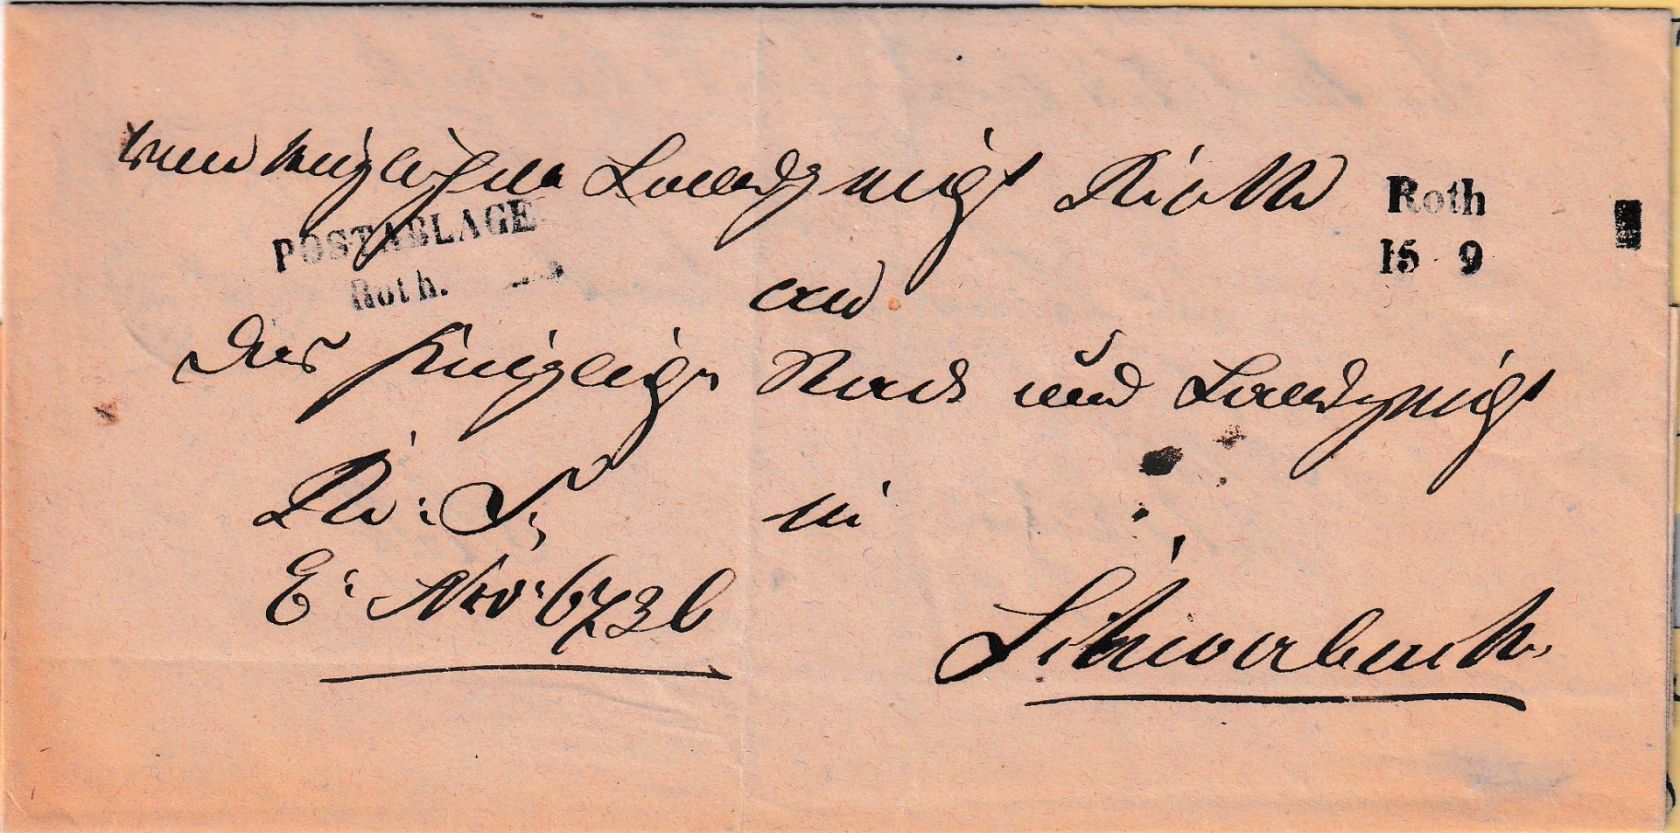 vom königlichen Landgericht Roth
Roth
15 9
POSTABLAGE
Roth.
an
das königliche Stadt und Landgericht
R: S. in
E: Nro: 6736
Schwabach.